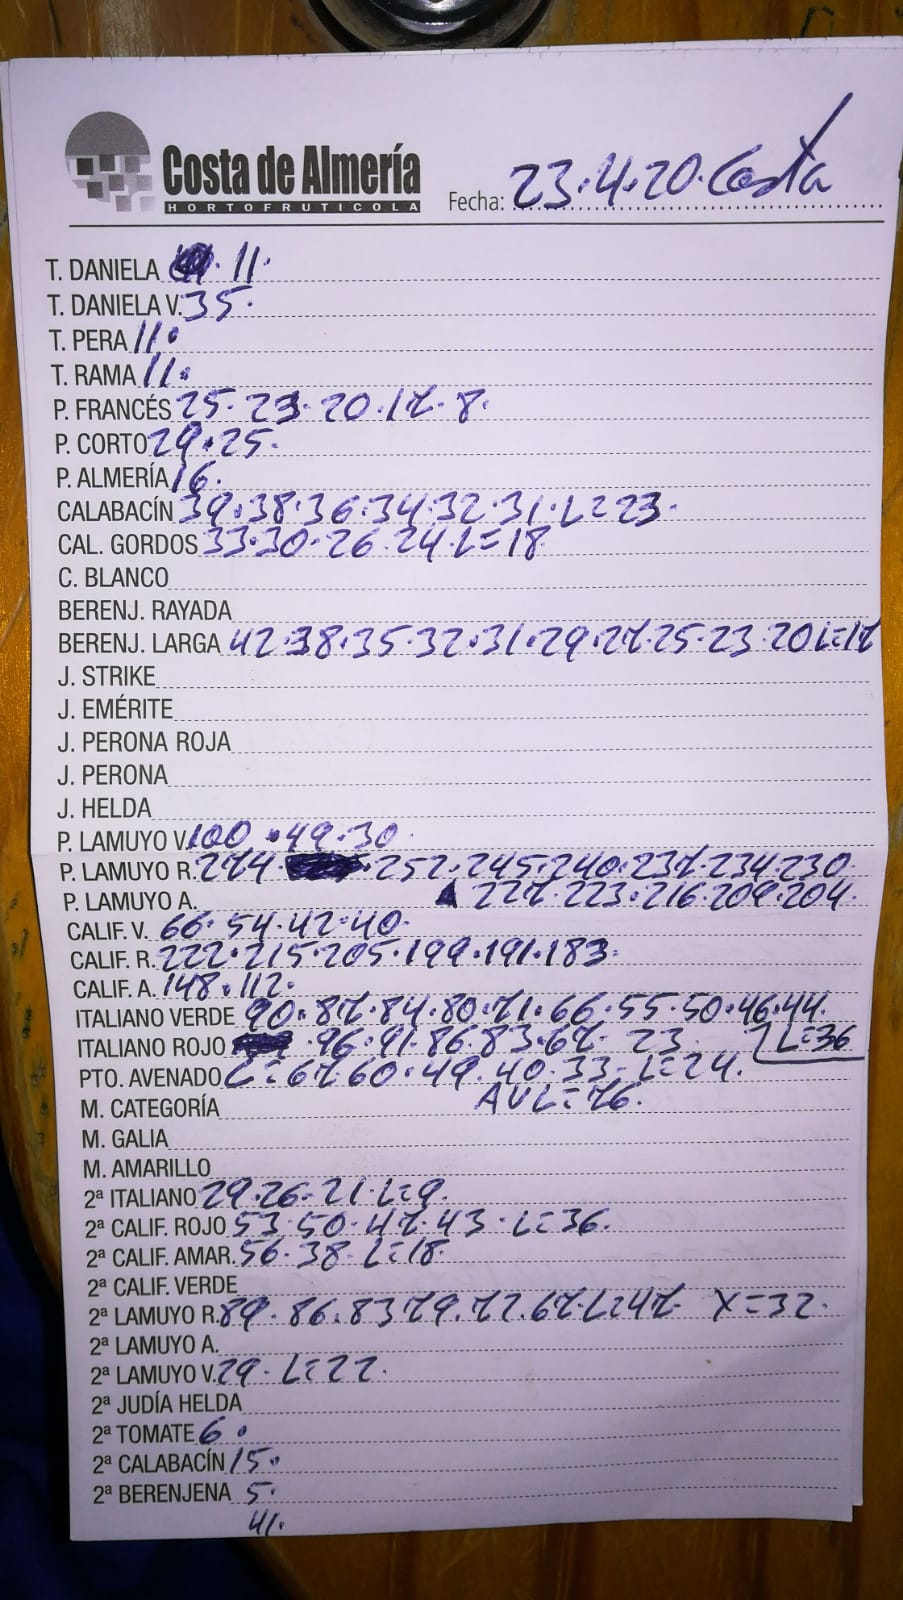 Costa de Almería
HORTOFRUTICOLA
Fecha: 23.4.20. Costa
T. DANIELA 11.
T. DANIELA V. 35.
T. PERA 11.
T. RAMA 11.
P. FRANCÉS 25. 23. 20. 17. 8.
P. CORTO 29. 25.
P. ALMERÍA 16.
CALABACÍN 39. 38. 36. 34. 32. 31. L=23.
CAL. GORDOS 33. 30. 26. 24. L=18
C. BLANCO
BERENJ. RAYADA
BERENJ. LARGA 42. 38. 35. 32. 31. 29. 27. 25. 23. 20 L=17
J. STRIKE
J. EMÉRITE
J. PERONA ROJA
J. PERONA
J. HELDA
P. LAMUYO V. 100. 49. 30.
P. LAMUYO R. 274. 252. 245. 240. 237. 234. 230.
P. LAMUYO A. 227. 223. 216. 209. 204.
CALIF. V. 66. 54. 42. 40.
CALIF. R. 222. 215. 205. 199. 191. 183.
CALIF. A. 148. 112.
ITALIANO VERDE 90. 87. 84. 80. 71. 66. 55. 50. 46. 44.
ITALIANO ROJO 96. 91. 86. 83. 67. 23. L=36
PTO. AVENADO C=67. 60. 49. 40. 33. L=24.
M. CATEGORÍA AVL=76.
M. GALIA
M. AMARILLO
2ª ITALIANO 29. 26. 21. L=9.
2ª CALIF. ROJO 53. 50. 47. 43. L=36.
2ª CALIF. AMAR. 56. 38. L=18.
2ª CALIF. VERDE
2ª LAMUYO R. 89. 86. 83. 79. 72. 67. L=47. X=32.
2ª LAMUYO A.
2ª LAMUYO V. 29. L=22.
2ª JUDÍA HELDA
2ª TOMATE 6.
2ª CALABACÍN 15.
2ª BERENJENA 5.
41.